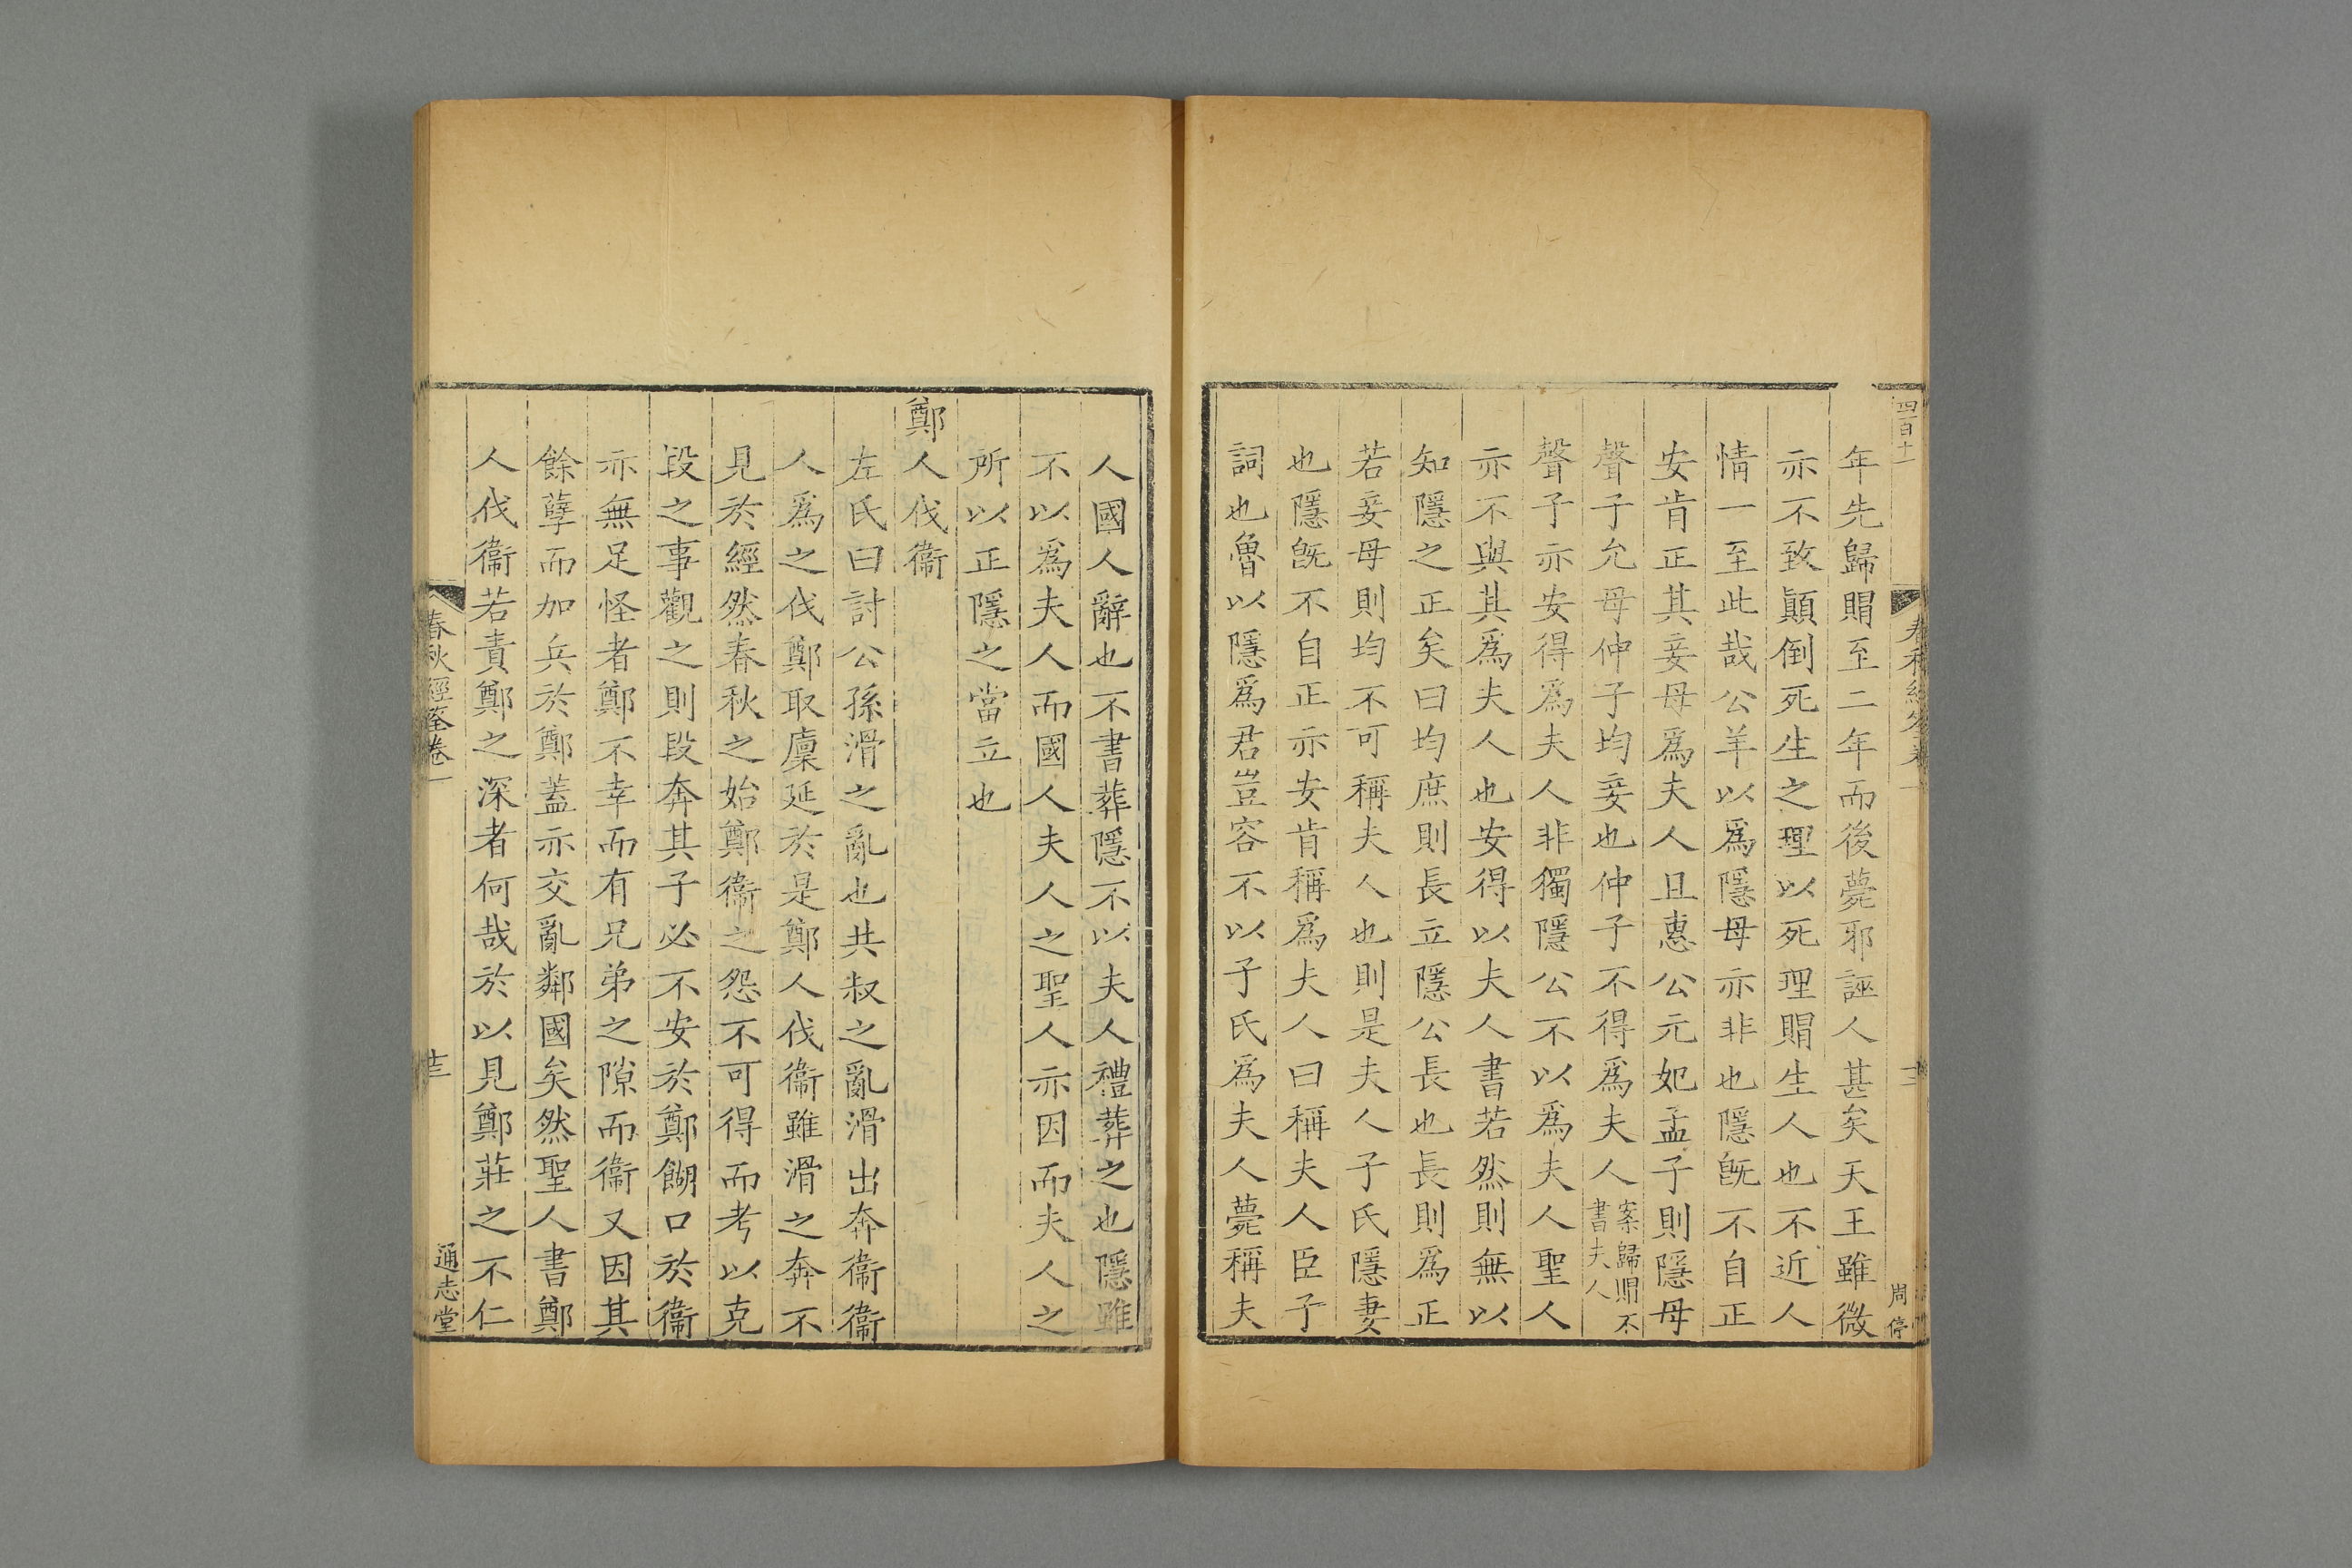 四百十一
春秋經筌卷一
十二
周停
年先歸賵至二年而後薨邪誣人甚矣天王雖微
亦不致顛倒死生之理以死理賵生人也不近人
情一至此哉公羊以爲隱母亦非也隱既不自正
安肯正其妾母爲夫人且惠公元妃孟子則隱母
聲子允母仲子均妾也仲子不得爲夫人案歸賵不書夫人
聲子亦安得爲夫人非獨隱公不以爲夫人聖人
亦不與其爲夫人也安得以夫人書若然則無以
知隱之正矣曰均庶則長立隱公長也長則爲正
若妾母則均不可稱夫人也則是夫人子氏隱妻
也隱既不自正亦安肯稱爲夫人曰稱夫人臣子
詞也魯以隱爲君豈容不以子氏爲夫人薨稱夫
人國人辭也不書葬隱不以夫人禮葬之也隱雖
不以爲夫人而國人夫人之聖人亦因而夫人之
所以正隱之當立也
鄭人伐衞
左氏曰討公孫滑之亂也共叔之亂滑出奔衞衞
人爲之伐鄭取廩延於是鄭人伐衞雖滑之奔不
見於經然春秋之始鄭衞之怨不可得而考以克
段之事觀之則段奔其子必不安於鄭餬口於衞
亦無足怪者鄭不幸而有兄弟之隙而衞又因其
餘孽而加兵於鄭蓋亦交亂鄰國矣然聖人書鄭
人伐衞若責鄭之深者何哉於以見鄭莊之不仁
春秋經筌卷一
十三
通志堂